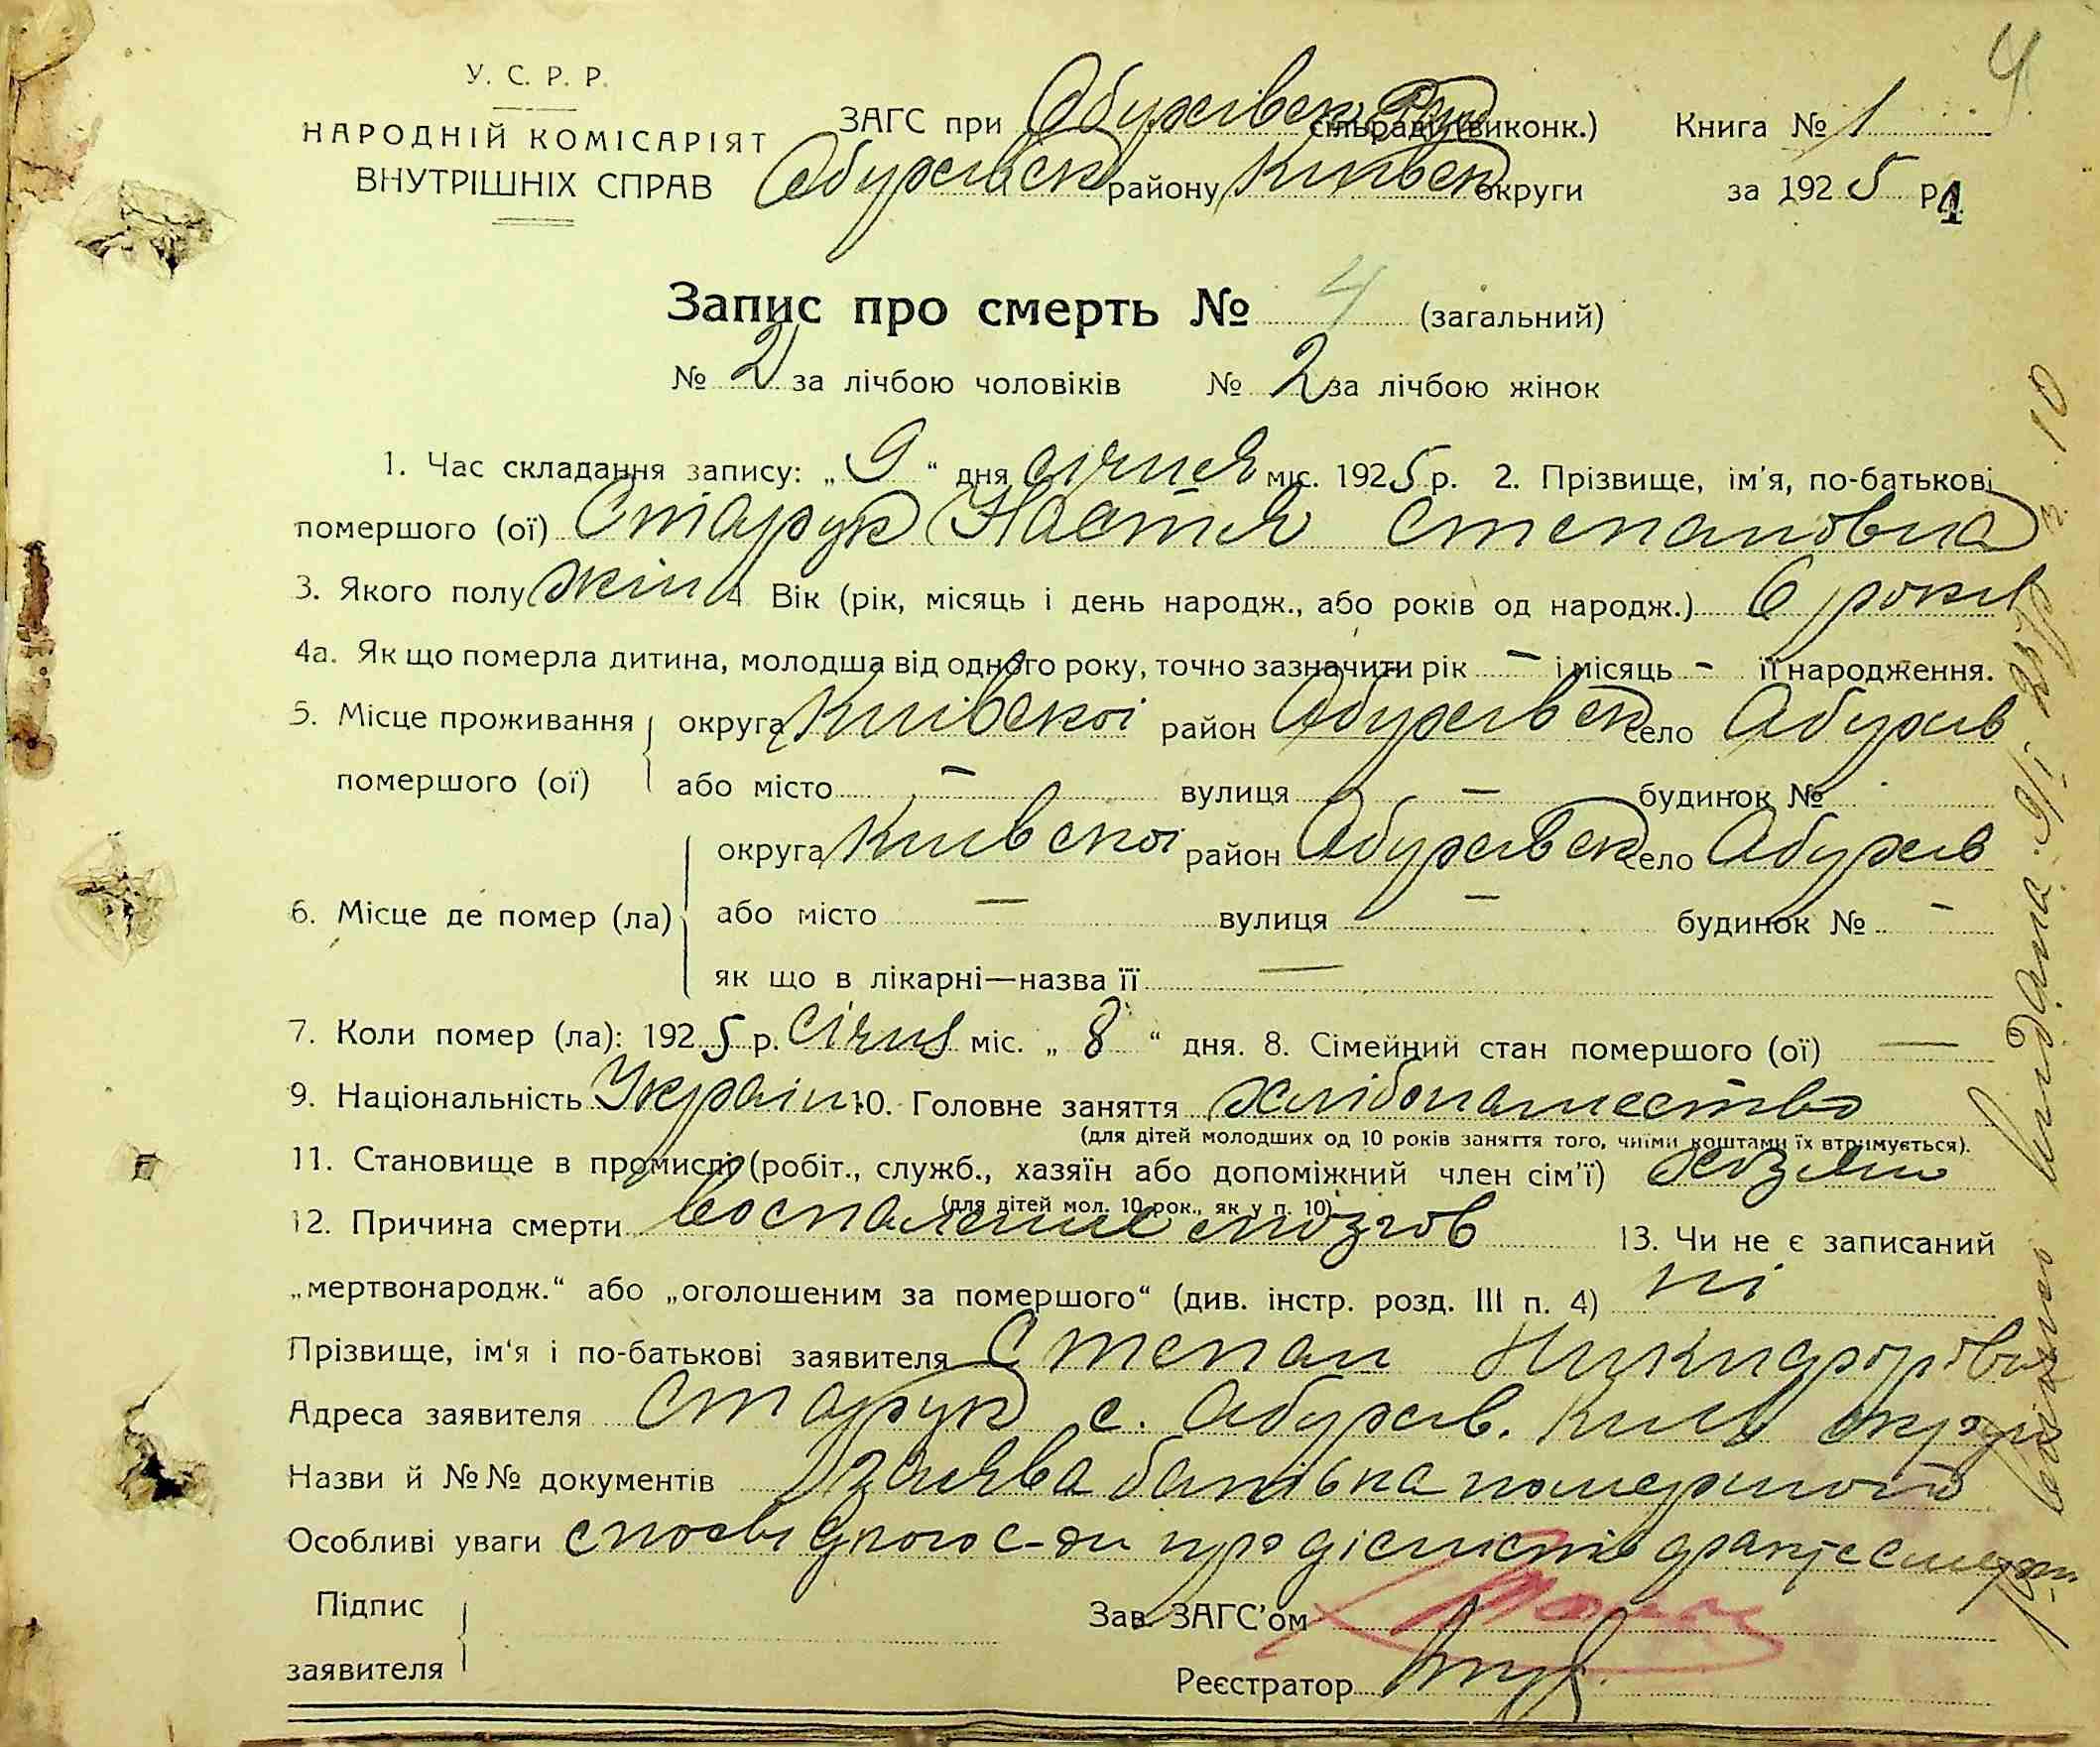 4
У. С. Р. Р.
НАРОДНІЙ КОМІСАРІЯТ
ВНУТРІШНІХ СПРАВ
ЗАГС при Обухівськ сільраді (виконк.) Книга № 1
Обухівськ району Київськ округи за 1925 р. 4
Запис про смерть № 4 (загальний)
№ 2 за лічбою чоловіків № 2 за лічбою жінок
1. Час складання запису: „9“ дня січня міс. 1925 р. 2. Прізвище, ім'я, по-батькові
помершого (ої) Старук Настя Степановна
3. Якого полу жін 4. Вік (рік, місяць і день народж., або років од народж.) 6 років
4а. Як що померла дитина, молодша від одного року, точно зазначити рік — і місяць - її народження.
5. Місце проживання помершого (ої) округа Київскоі район Обухівск село Обухів
або місто — вулиця — будинок №
6. Місце де помер (ла) округа Київскоі район Обухівск село Обухів
або місто — вулиця — будинок № -
як що в лікарні—назва її —
7. Коли помер (ла): 1925 р. Січня міс. „8“ дня. 8. Сімейний стан помершого (ої) —
9. Національність Україн 10. Головне заняття хлібопашество
(для дітей молодших од 10 років заняття того, чиїми коштами їх втримується).
11. Становище в промислі (робіт., служб., хазяїн або допоміжний член сім'ї) хозяин
(для дітей мол. 10 рок., як у п. 10)
12. Причина смерти воспаление мозгов 13. Чи не є записаний
„мертвонародж.“ або „оголошеним за помершого“ (див. інстр. розд. III п. 4) ні
Прізвище, ім'я і по-батькові заявителя Степан Никифорович
Адреса заявителя Старук с. Обухів. Київ округи
Назви й №№ документів заява батька помершого
Особливі уваги с-ди про дійсність факту смерти
Підпис заявителя
Зав. ЗАГС'ом
Реєстратор
видана 9/I 25 р. з. 10